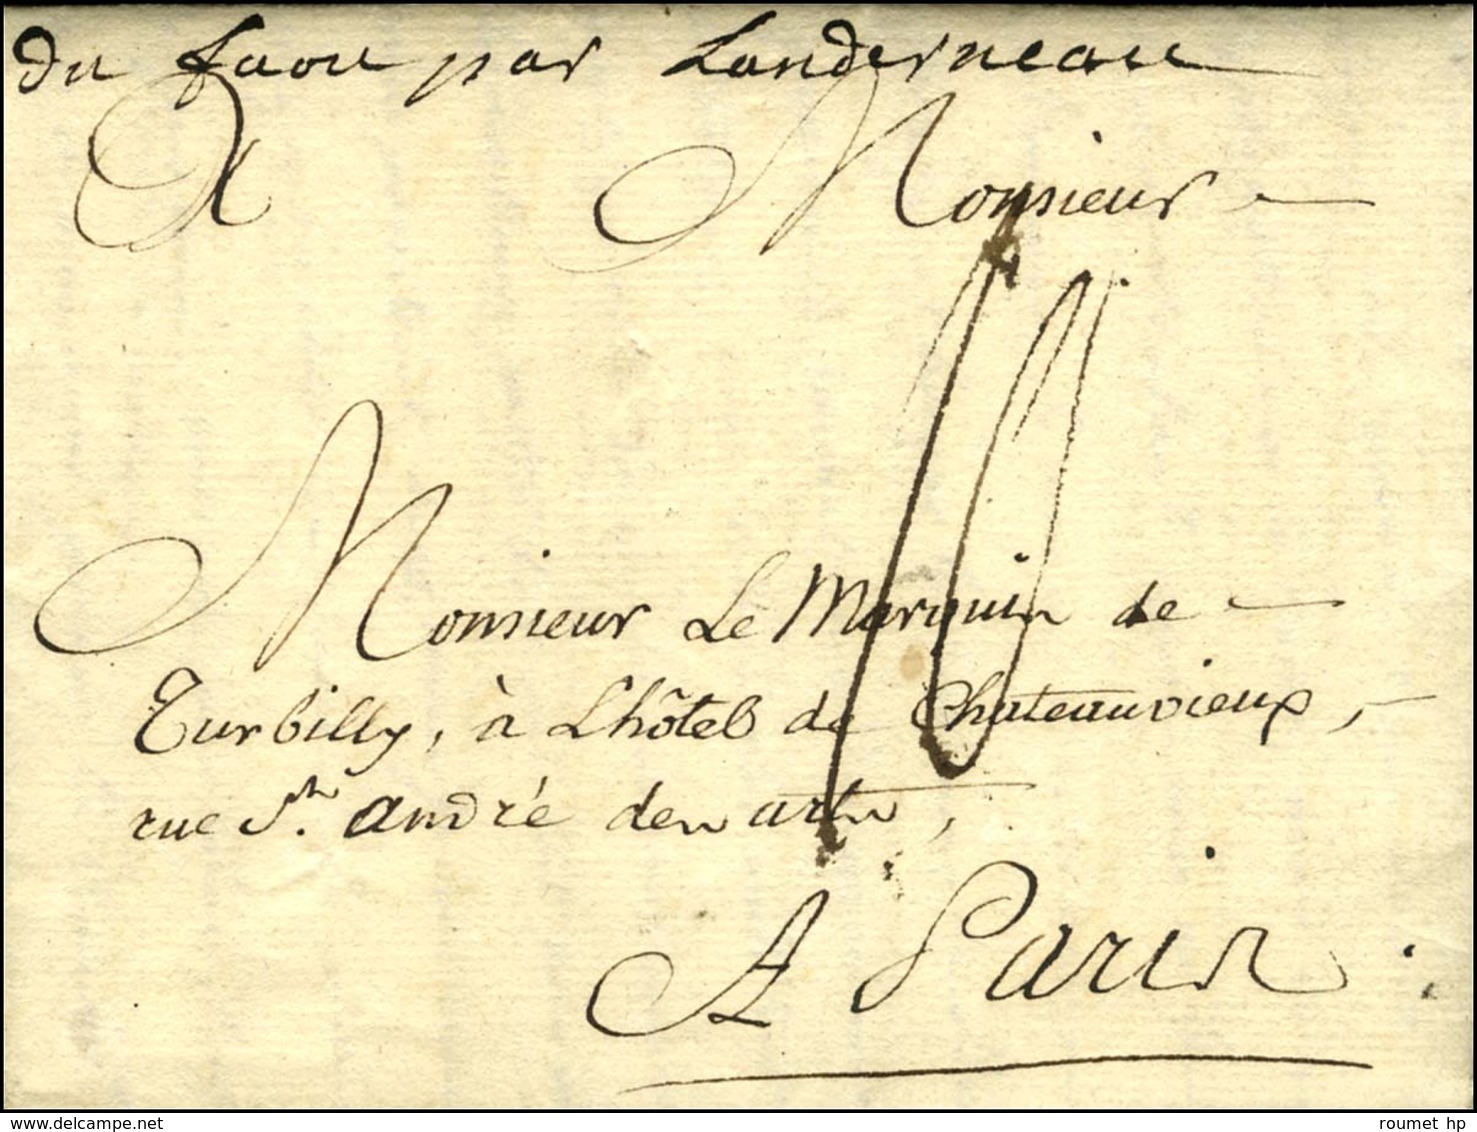 du faou par Landerneau
A Monsieur
Monsieur Le Marquis de
Turbilly, à Lhôtel de Chateauvieux,
rue St. andré des arts,
A Paris.
roumet hp